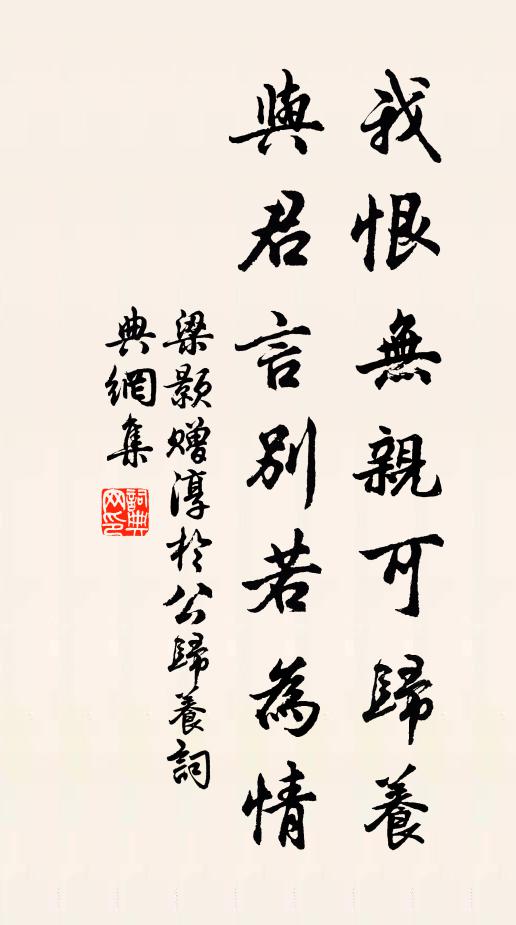 我恨無親可歸養
與君言別若為情
梁顥贈淳於公歸養詞
典網集
詞典网印